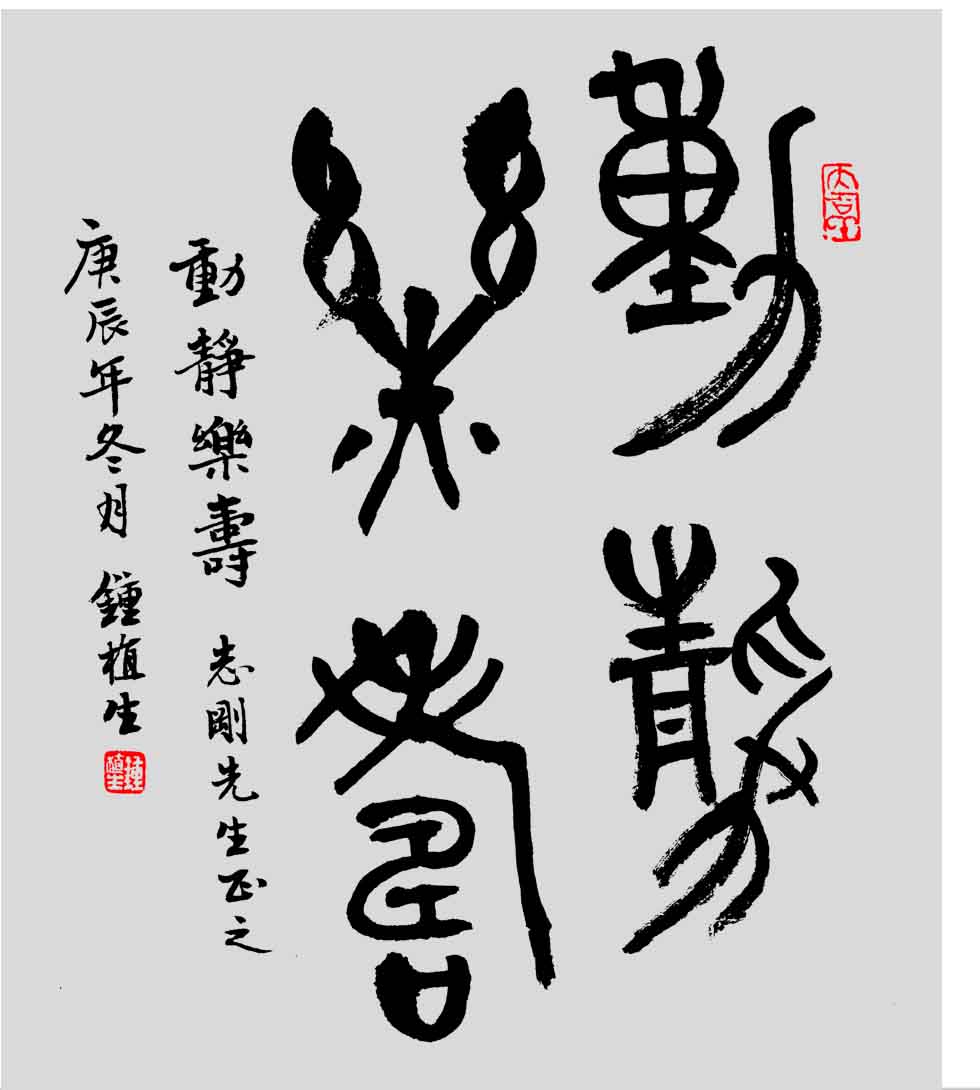 動靜
樂壽
動靜樂壽 志剛先生正之
庚辰年冬月 鍾植生